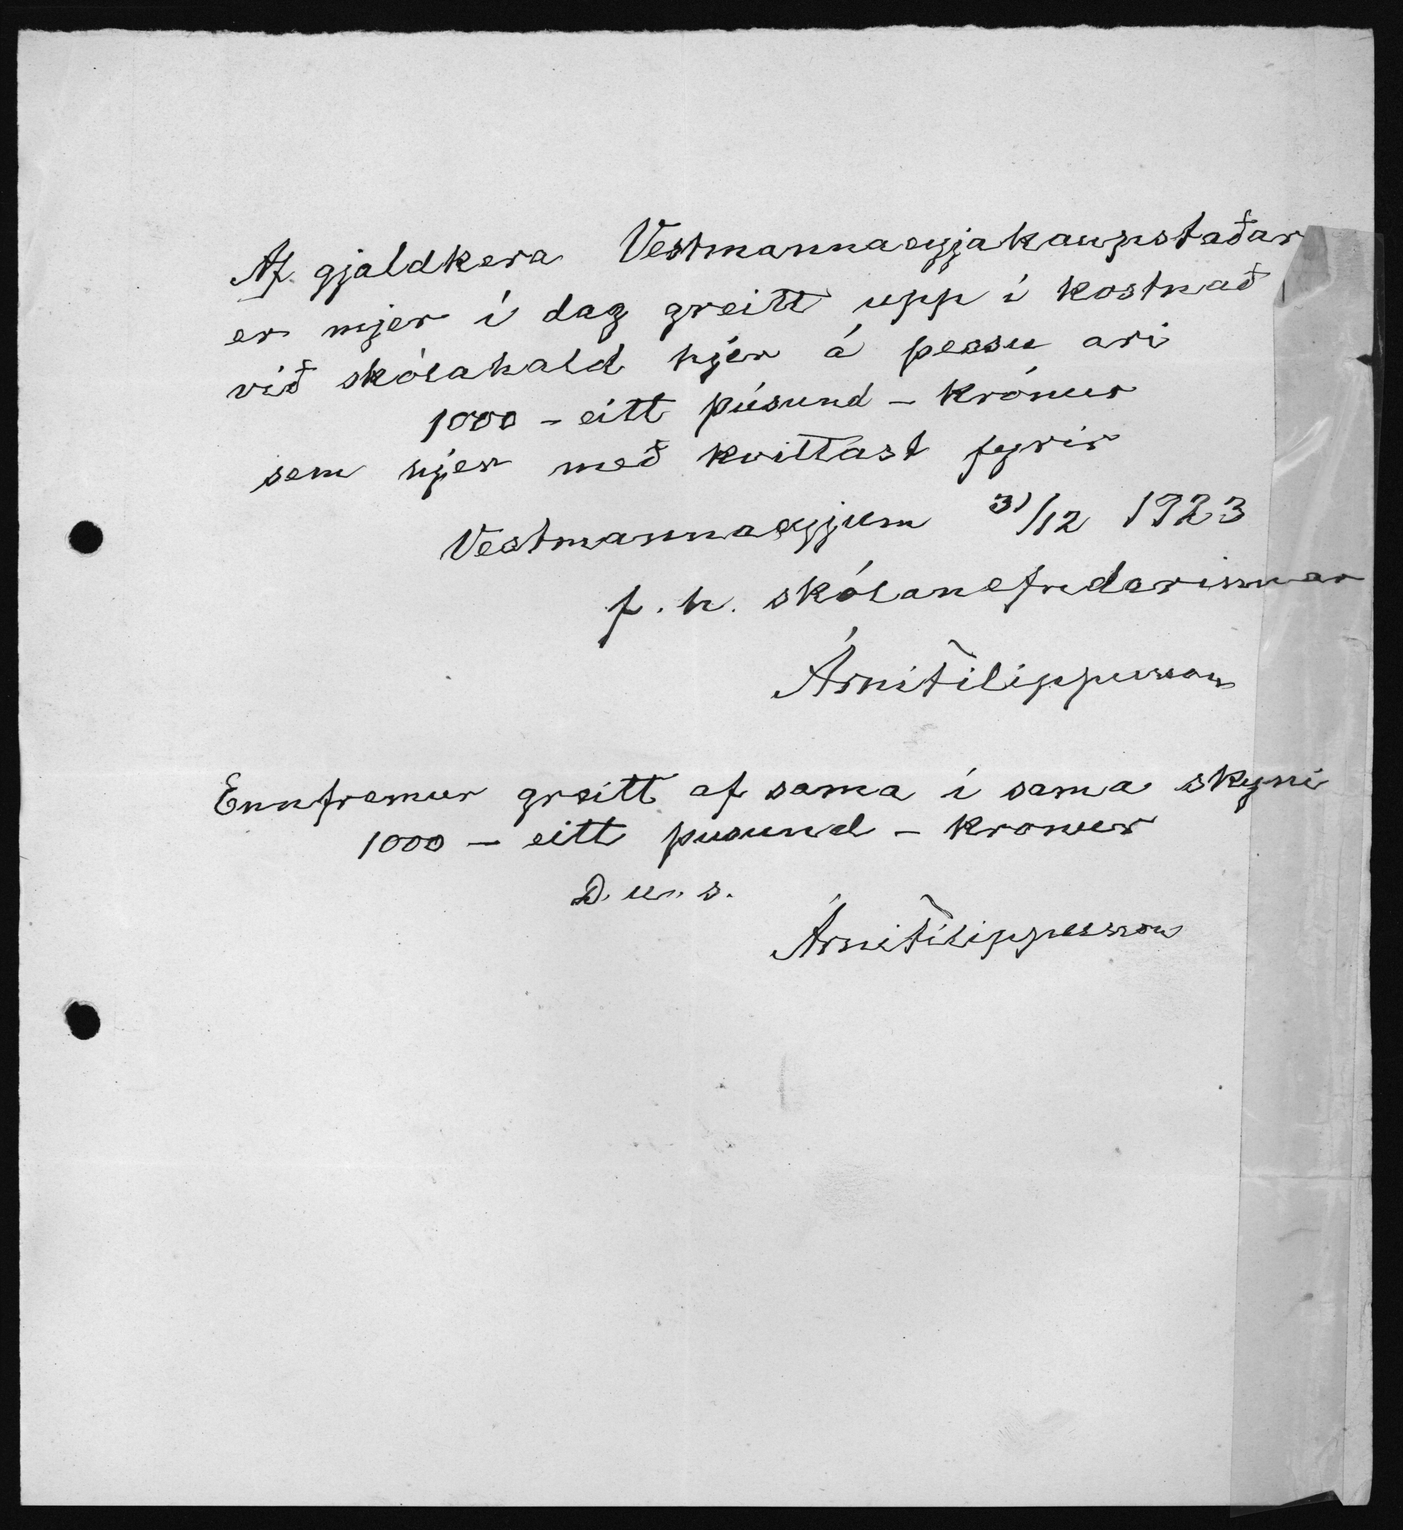 Af gjaldkera Vestmannaeyjakaupstaðar
er mjer í dag greitt upp í kostnað
við skólahald hjer á þessu ári
1000 - eitt þúsund - krónur
sem hjer með kvittast fyrir
Vestmannaeyjum 31/12 1923
f. h. skólanefndarinnar
Árni Filippusson
Ennfremur greitt af sama í sama skyni
1000 - eitt þusund - kronur
D. u. s.
Árni Filippusson